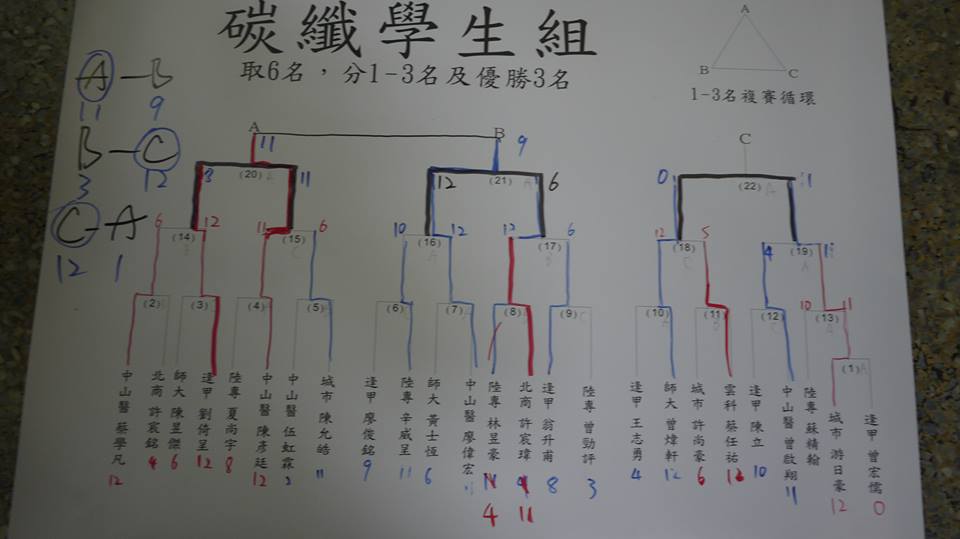 碳纖學生組
取6名，分1-3名及優勝3名
A
B C
1-3名複賽循環
A — B
11 9
B — C
3 12
C — A
12 1
A B C
11 9
(20) (21) (22)
3 11 12 6 0 1
6 12 11 6 10 12 12 6 12 5 4
(14) (15) (16) (17) (18) (19)
10 11
(2) (3) (4) (5) (6) (7) (8) (9) (10) (11) (12) (13)
(1)
中山醫 蔡學凡 12
北商 許宸銘 4
師大 陳昱傑 6
逢甲 劉倚呈 12
陸專 夏尚宇 8
中山醫 陳彥廷 12
中山醫 伍虹霖 2
城市 陳允皓 11
逢甲 廖俊銘 9
陸專 辛威呈 11
師大 黃士恆 6
中山醫 廖偉宏
陸專 林昱豪 4
北商 許宸瑋 11
逢甲 翁升甫 8
陸專 曾勁評 3
逢甲 王志勇 4
師大 曾煒軒 12
城市 許尚豪 6
雲科 蔡任祐 12
逢甲 陳立 10
中山醫 曾啟翔 11
陸專 蘇精翰
城市 游日豪 12
逢甲 曾宏儒 0